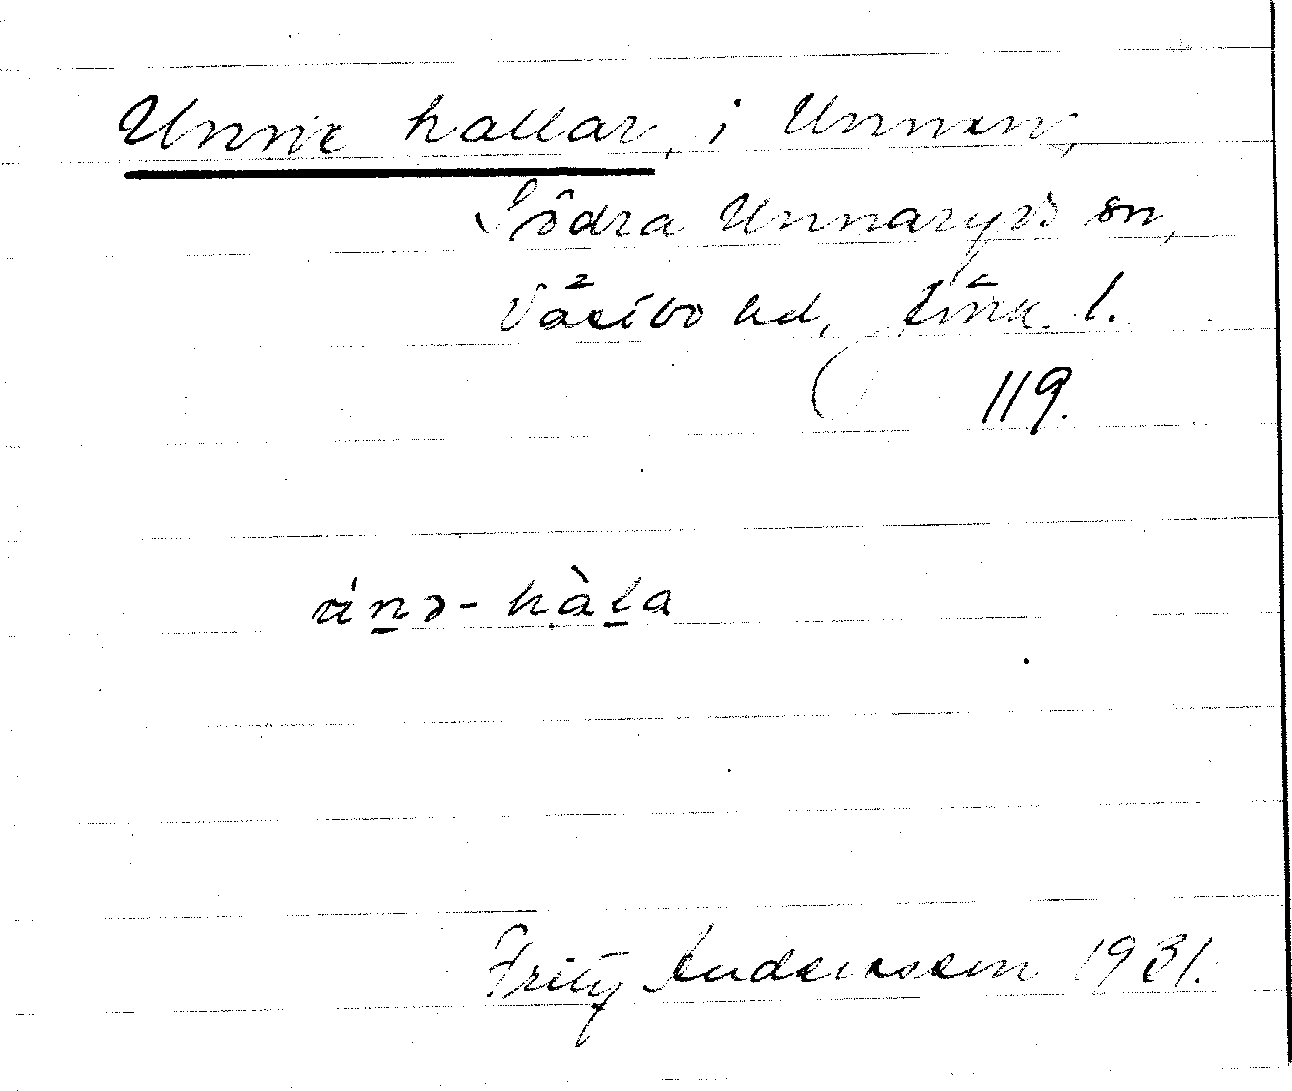 Unne hallar, i Unnen,
Södra Unnaryds sn,
Västbo hd, Jönk. l.
119.
ùnə-hàla
Fritz Anderssen 1931.